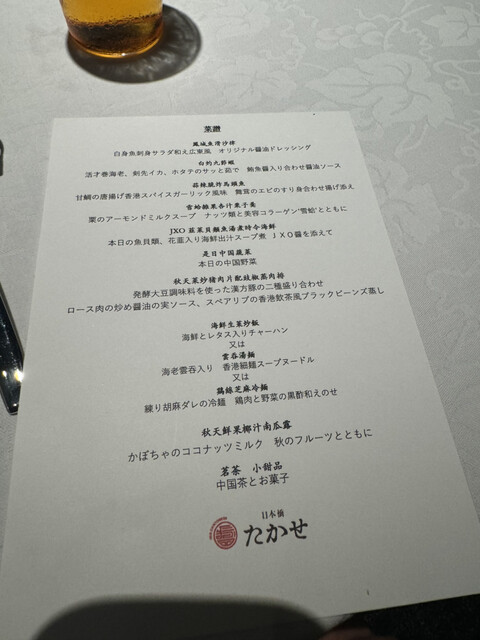 菜譜
鳳城魚滑沙律
白身魚刺身サラダ和え広東風 オリジナル醤油ドレッシング
白灼九節蝦
活才巻海老、剣先イカ、ホタテのサッと茹で 鮑魚醤入り合わせ醤油ソース
蒜辣脆炸馬頭魚
甘鯛の唐揚げ香港スパイスガーリック風味 舞茸のエビのすり身合わせ揚げ添え
雪蛤雜果杏汁栗子羹
栗のアーモンドミルクスープ ナッツ類と美容コラーゲン“雪蛤”とともに
JXO 韮菜貝類魚湯煮時令海鮮
本日の魚貝類、花韮入り海鮮出汁スープ煮 JXO醤を添えて
是日中国蔬菜
本日の中国野菜
秋天菜炒猪肉片配豉椒蒸肉排
発酵大豆調味料を使った漢方豚の二種盛り合わせ
ロース肉の炒め醤油の実ソース、スペアリブの香港飲茶風ブラックビーンズ蒸し
海鮮生菜炒飯
海鮮とレタス入りチャーハン
又は
雲呑湯麺
海老雲呑入り 香港細麺スープヌードル
又は
鶏絲芝麻冷麺
練り胡麻ダレの冷麺 鶏肉と野菜の黒酢和えのせ
秋天鮮果椰汁南瓜露
かぼちゃのココナッツミルク 秋のフルーツとともに
茗茶 小甜品
中国茶とお菓子
日本橋
たかせ